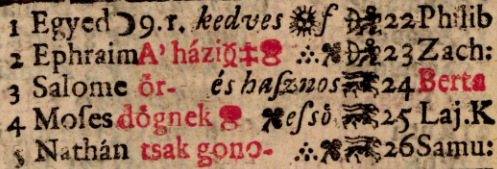 1 Egyed ☽9.1. kedves ſ 22 Philib
2 Ephraim A' házi 23 Zach:
3 Salome ör- és haſznos 24 Berta
4 Moſes dögnek eſsö 25 Laj.K
5 Nathán tsak gono- 26 Samu: